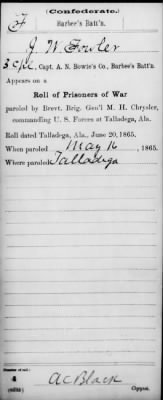 (Confederate.)
F Barbee's Batt'n.
J. W. Fowler
3 Cpl., Capt. A. N. Bowie's Co., Barbee's Batt'n.
Appears on a
Roll of Prisoners of War
paroled by Brevt. Brig. Gen'l M. H. Chrysler,
commanding U. S. Forces at Talladega, Ala.
Roll dated Talladega, Ala., June 20, 1865.
When paroled May 16, 1865.
Where paroled Talladega
Number of roll:
4
A C Black
Copyist.